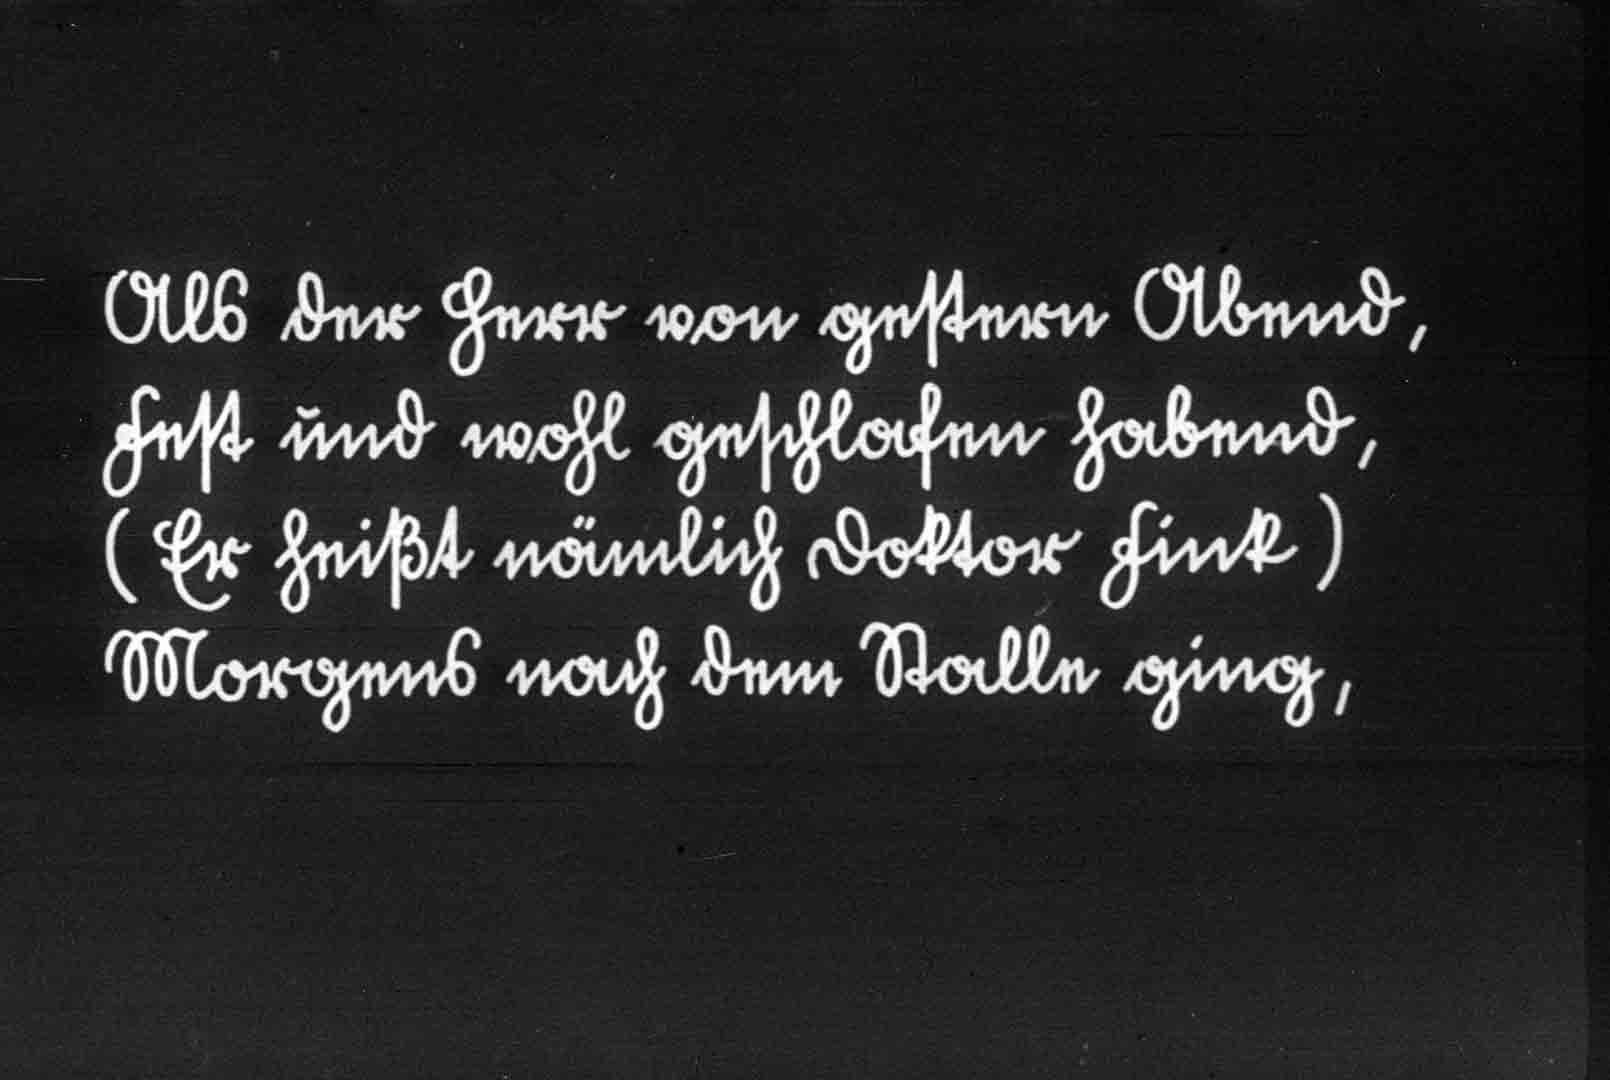 Als der Herr von gestern Abend,
Fest und wohl geschlafen habend,
(Er heißt nämlich Doktor Fink)
Morgens nach dem Stalle ging,